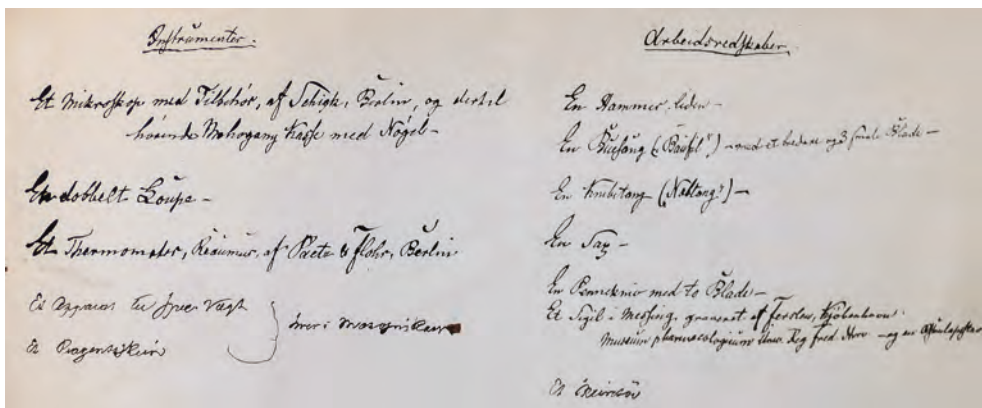 Instrumenter.
Et Mikroskop med Tilbehör, af Schiek, Berlin, og dertil
hörende Mahogany Kasse med Nögel –
En dobbelt Loupe –
Et Thermometer, Réaumur, af & Flohr, Berlin
Et Apparat til spec. Vægt
Et
Arbeidsredskaber.
En Hammer, liden –
En Buesaug ("Baufil") – med et bredere og 3 smale Blade –
En Knibetang ("Nebtang") –
En Sax –
En Pennekniv med to Blade –
Et Sigil i Messing, graveret af Kjöbenhavn:
Museum pharmacologicum Univ. Reg. Fred. – og en
Et